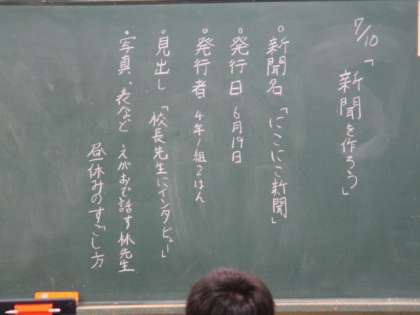 7/10「新聞を作ろう」
○新聞名「にこにこ新聞」
○発行日 6月19日
○発行者 4年1組2はん
○見出し「校長先生にインタビュー」
○写真、表など えがおで話す林先生
昼休みのすごし方